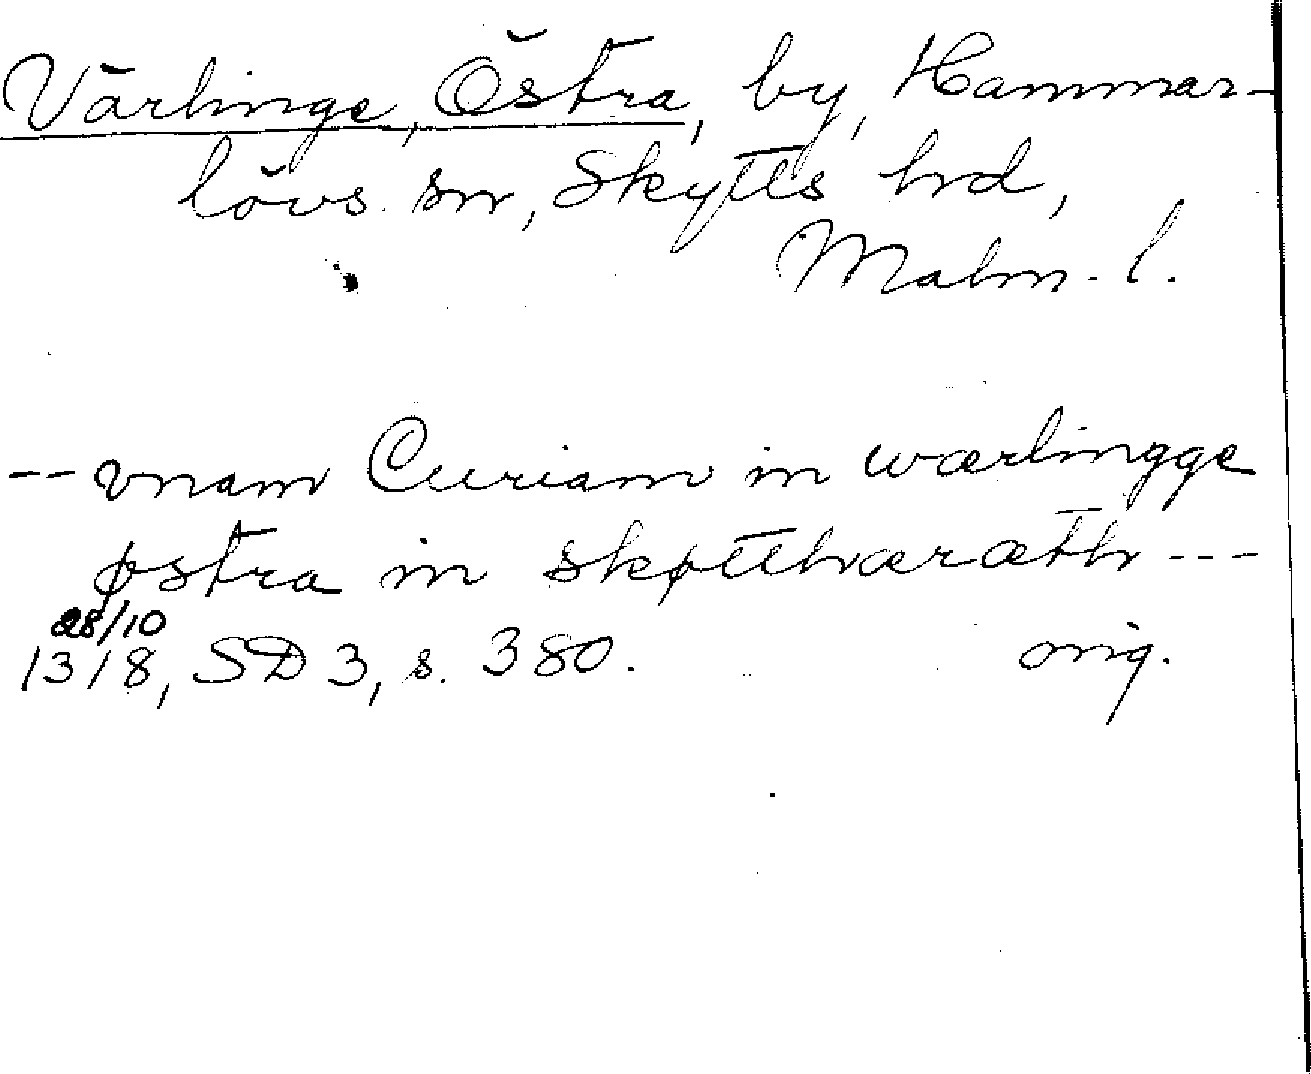 Värlinge, Östra, by, Hammar-
lövs sn, Skytts hd,
Malm. l.
-- vnam Curiam in wærlingge
østra in skøtthæræth ---
28/10
1318, SD 3, s. 380. orig.